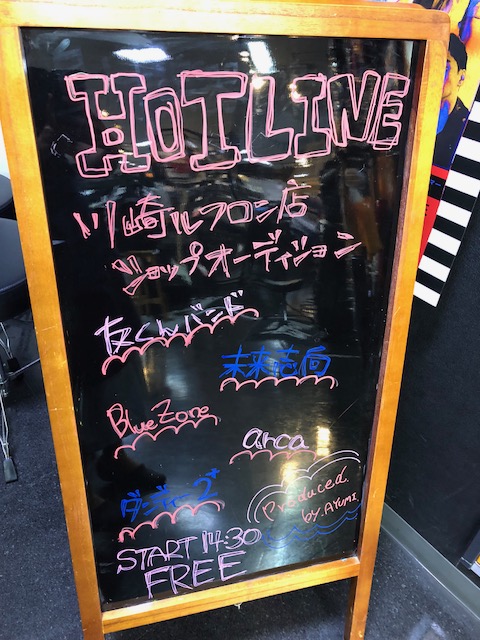 HOTLINE
川崎ルフロン店
ショップオーディション
友くんバンド
未来志向
Blue Zone
arca
ダンディーズ
Produced
by. AYUMI
START 14:30
FREE